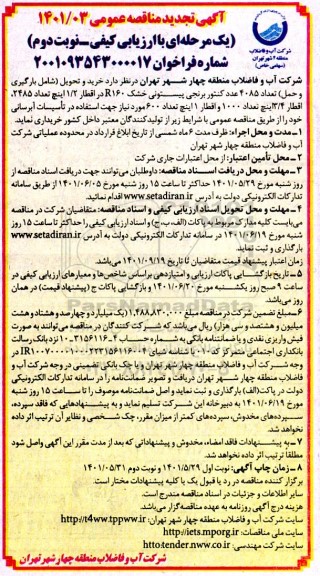 آگهی تجدید مناقصه عمومی ۱۴۰۱/۰۳
(یک مرحله‌ای با ارزیابی کیفی - نوبت دوم)
شماره فراخوان ۲۰۰۱۰۹۳۵۴۳۰۰۰۰۱۷
شرکت آب و فاضلاب
منطقه ۴ شهر تهران
(سهامی خاص)
شرکت آب و فاضلاب منطقه چهار شهر تهران در نظر دارد خرید و تحویل (شامل بارگیری
و حمل) تعداد ۴۰۸۵ عدد کنتور برنجی پیستونی خشک R۱۶۰ در اقطار ۱/۲ اینچ تعداد ۲۴۸۵،
اقطار ۳/۴ اینچ تعداد ۱۰۰۰ و اقطار ۱ اینچ تعداد ۶۰۰ مورد نیاز جهت استفاده در تأسیسات آبرسانی
خود را از طریق مناقصه عمومی با شرایط زیر از تولیدکنندگان معتبر داخل کشور خریداری نماید.
۱- مدت و محل اجراء: ظرف مدت ۶ ماه شمسی از تاریخ ابلاغ قرارداد در محدوده عملیاتی شرکت
آب و فاضلاب منطقه چهار شهر تهران
۲- محل تأمین اعتبار: از محل اعتبارات جاری شرکت
۳- مهلت و محل دریافت اسناد مناقصه: داوطلبان می‌توانند جهت دریافت اسناد مناقصه از
روز شنبه مورخ ۱۴۰۱/۰۵/۲۹ حداکثر تا ساعت ۱۵ روز شنبه مورخ ۱۴۰۱/۰۶/۰۵ از طریق سامانه
تدارکات الکترونیکی دولت به آدرس www.setadiran.ir اقدام نمایند.
۴- مهلت و محل تحویل اسناد ارزیابی کیفی و اسناد مناقصه: متقاضیان شرکت در مناقصه
می‌بایست کلیه مدارک مربوط به پاکات (الف، ب، ج) و اسناد ارزیابی را حداکثر تا ساعت ۱۵ روز
شنبه مورخ ۱۴۰۱/۰۶/۱۹ در سامانه تدارکات الکترونیکی دولت به آدرس www.setadiran.ir
بارگذاری و ثبت نماید.
زمان اعتبار پیشنهاد قیمت متقاضیان تا تاریخ ۱۴۰۱/۰۹/۱۹ می‌باشد.
۵- تاریخ بازگشایی پاکات ارزیابی و امتیازدهی براساس شاخص‌ها و معیارهای ارزیابی کیفی در
ساعت ۹ صبح روز یکشنبه مورخ ۱۴۰۱/۰۶/۲۰ و بازگشایی پاکات ج (پیشنهاد قیمت) در همان
روز می‌باشد.
۶- مبلغ تضمین شرکت در مناقصه مبلغ ۱,۴۸۸,۸۳۰,۰۰۰ (یک میلیارد و چهارصد و هشتاد و هشت
میلیون و هشتصد و سی هزار) ریال می‌باشد که شرکت کنندگان در مناقصه می‌توانند به صورت
فیش واریزی نقدی و یا ضمانتنامه بانکی به شماره حساب ۱۰۰۳۱۵۶۱۱۶۰۴ نزد بانک رسالت
در
وجه شرکت آب و فاضلاب منطقه چهار شهر تهران و یا چک بانکی تضمینی در وجه شرکت آب و
فاضلاب منطقه چهار شهر تهران دریافت و تصویر ضمانت‌نامه را در سامانه تدارکات الکترونیکی
دولت در پاکت (الف) بارگذاری و ثبت نماید و اصل ضمانتنامه موصوف را تا ساعت ۱۵ روز شنبه
مورخ ۱۴۰۱/۰۶/۱۹ به دبیرخانه این شرکت تسلیم نماید و به پیشنهادهایی که فاقد سپرده،
سپرده‌های مخدوش، سپرده‌های کمتر از میزان مقرر، چک شخصی و نظایر آن ترتیب اثر داده
نخواهد شد.
۷- به پیشنهادات فاقد امضاء، مخدوش و پیشنهاداتی که بعد از مدت مقرر این آگهی واصل شود
مطلقاً ترتیب اثر داده نخواهد شد.
۸- زمان چاپ آگهی: نوبت اول ۱۴۰۱/۵/۲۹ و نوبت دوم ۱۴۰۱/۰۵/۳۱
برگزار کننده مناقصه در رد یا قبول یک یا کلیه پیشنهادات مختار است.
سایر اطلاعات و جزئیات در اسناد مناقصه مندرج است.
هزینه درج آگهی روزنامه به عهده مناقصه‌گزار می‌باشد.
سایت شرکت آب و فاضلاب منطقه چهار شهر تهران: http://t4ww.tppww.ir
سایت ملی مناقصات: http://iets.mporg.ir
سایت شرکت مهندسی: http:tender.nww.co.ir
شرکت آب و فاضلاب منطقه چهار شهر تهران